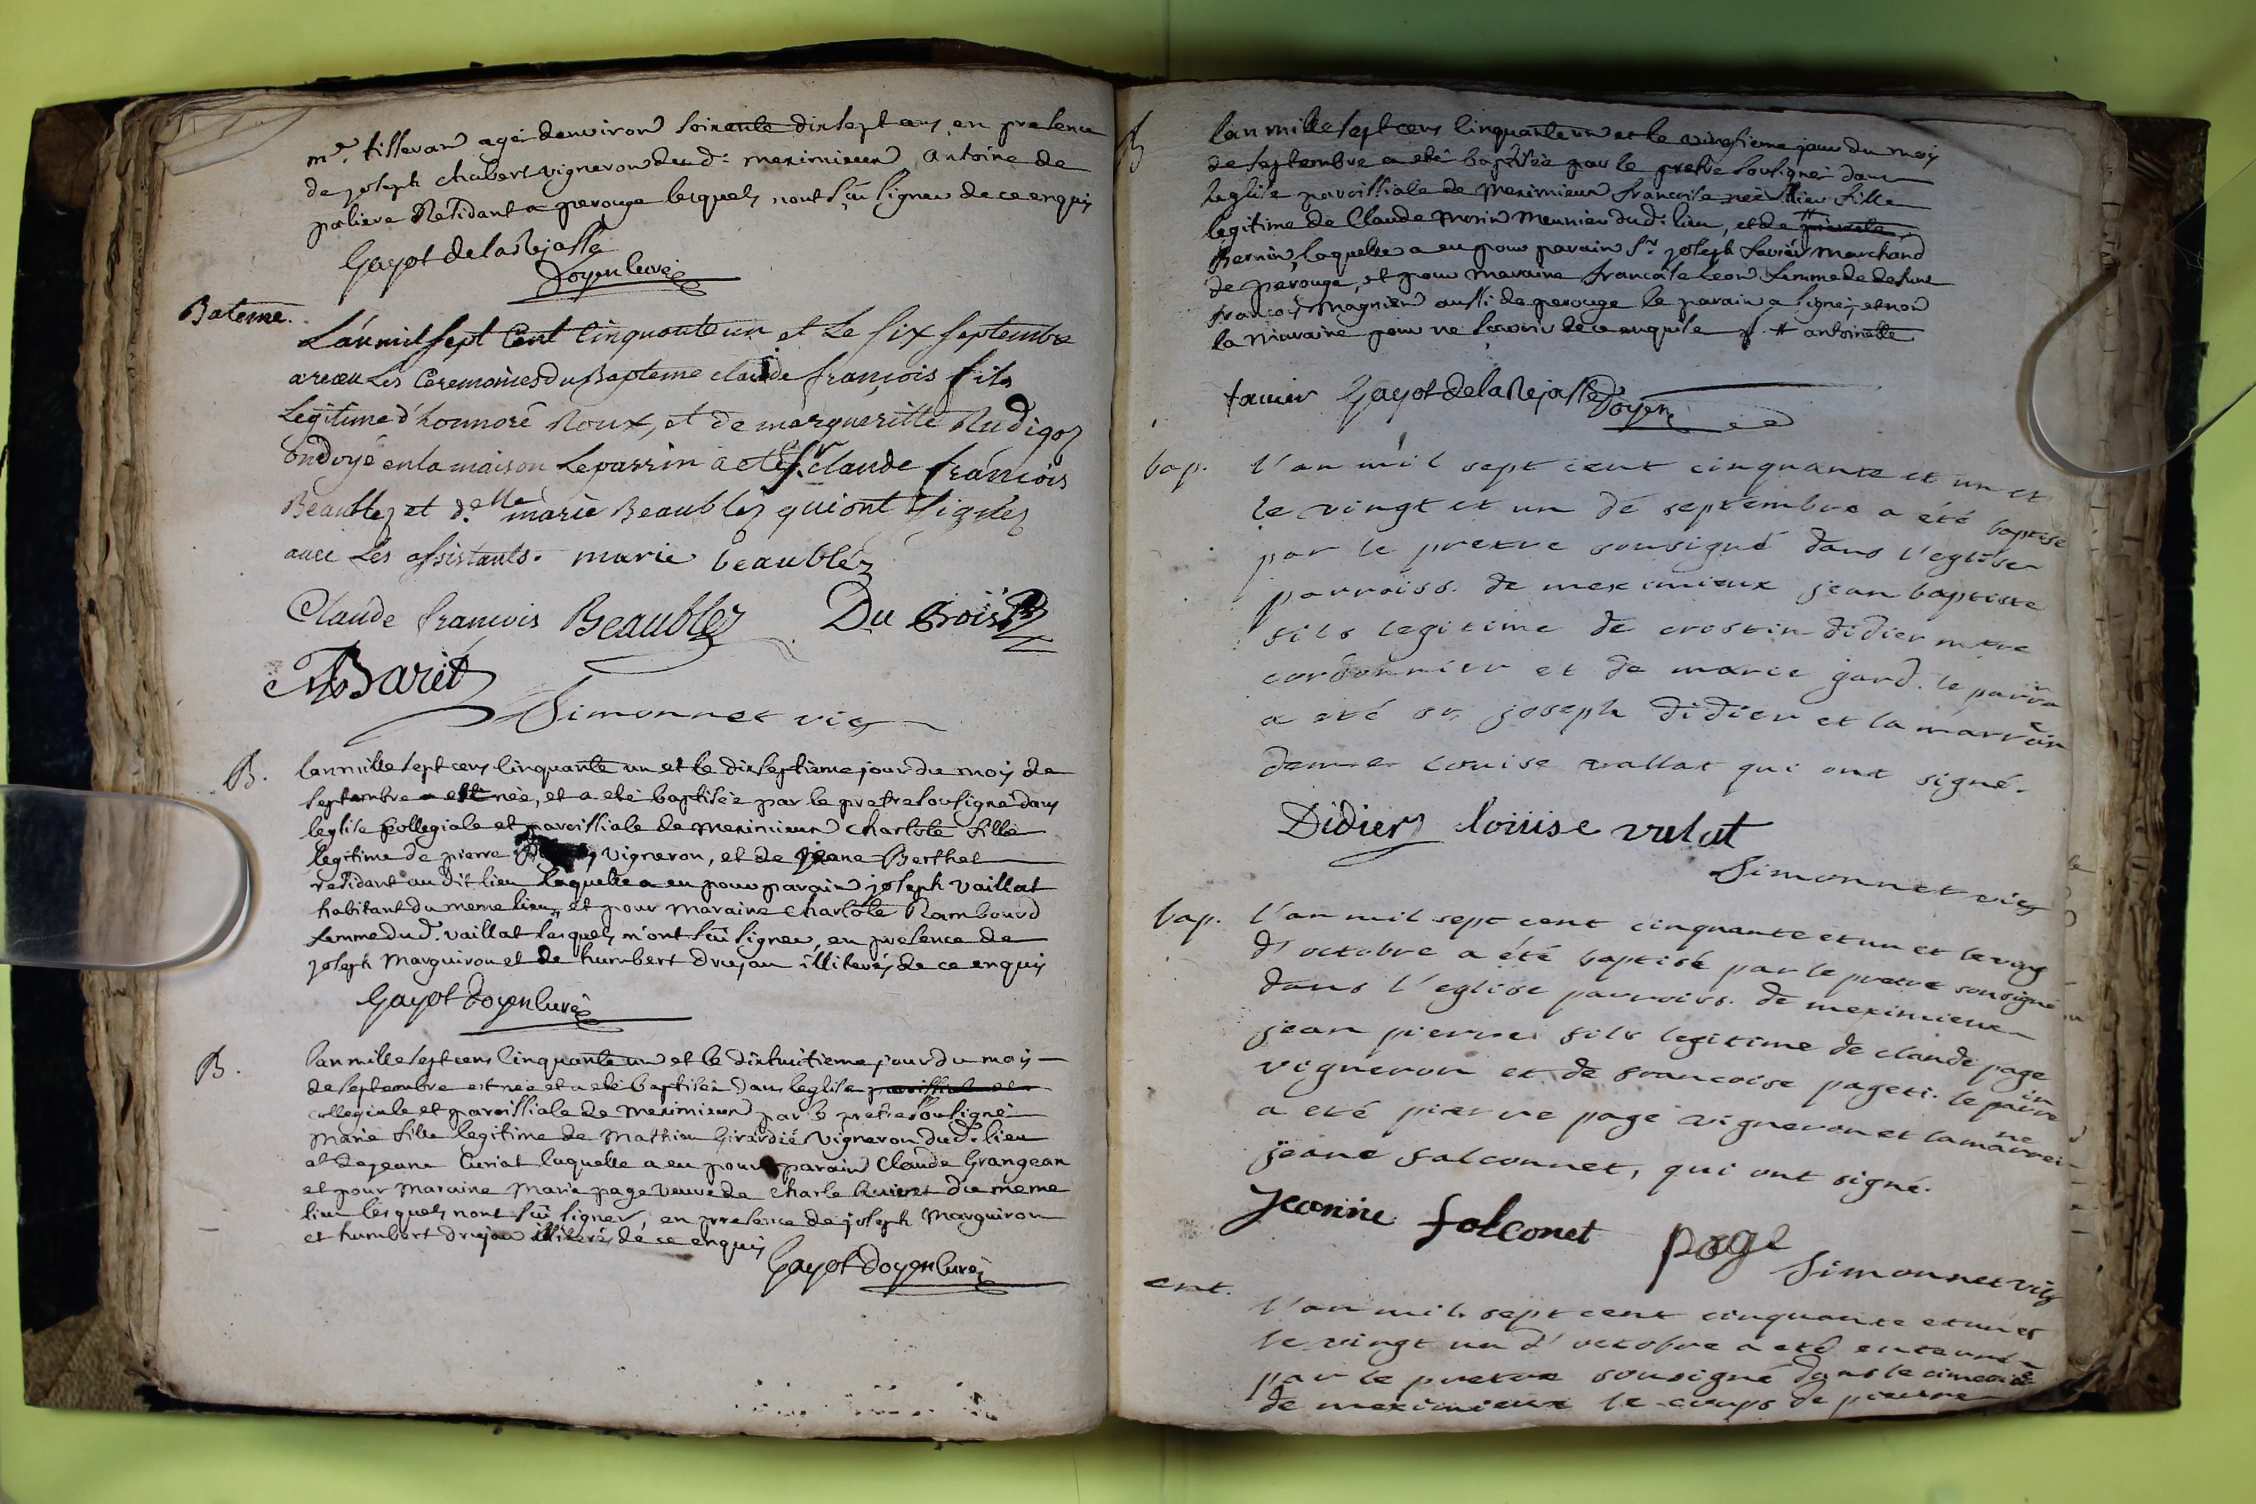 mre. tisseran agé denviron soixante dix sept ans, en presence
de joseph chabert vigneron dud: meximieux, antoine de
poliere Residant a perouge lesquels nont sçû signer de ce enquis
Gayot de la Rejasse
Doyen Curé
Bateme.
L'an mil sept Cent Cinquante un et Le six septembre
a reçu Les Ceremonies du Bapteme claude françois fils
Legitime d'honnoré Roux, et de margueritte Rudigoz
ondoyé en la maison Le parrin a eté Sr. claude françois
Beaublez et d.elle marie Beaublez qui ont signés
avec Les assistants. marie beaubléz
Claude françois Beaublez Du Crois
Baret
Simonnet vic
B.
lan mille sept cens cinquante un et le dix septieme jour du moy de
septembre est née, et a eté baptisée par le pretre sousigné dans
leglise collegiale et paroissiale de meximieux charlote fille
legitime de pierre vigneron, et de jeane Berthet
residant au dit lieu laquelle a eu pour parain joseph vaillat
habitant du meme lieu, et pour maraine charlote Rambourd
femme dud. vaillat lesquels n'ont sçû signer, en presence de
joseph Marguiron et de humbert drujon illiterés de ce enquis
Gayot Doyen Curé
B.
lan mille sept cens cinquante un et le dixhuitieme jour du moy
de septembre est née et a eté baptisée dans leglise paroissiale et
collegiale et paroissiale de meximieux par le pretre sousigné
Marie fille legitime de Mathieu Girardié vigneron dud. lieu
et de jeane Curiat laquelle a eu pour parain Claude Grangean
et pour Maraine Marie page veuve de charle du meme
lieu lesquels nont sçû signer, en presence de joseph Marguiron
et humbert drujon illiterés de ce enquis
Gayot Doyen Curé
B
lan mille sept cens cinquante un et le vintieme jour du moy
de septembre a eté baptisée par le pretre sousigné dans
leglise paroissiale de Meximieux francoise née fille
legitime de Claude Morin Meunier dud. lieu, et de #
Bernin, laquelle a eu pour parain Sr. joseph favier Marchand
de perouge, et pour maraine francoise Leon femme de defunt
françois Magnien aussi de perouge le parain a signé, et non
la Maraine pour ne sçavoir de ce enquise # antoinette
favier Gayot de la Rejasse Doyen
bap.
l'an mil sept cent cinquante et un et
le vingt et un de septembre a été baptisé
par le pretre sousigné dans l'eglise
parroiss. de meximieux jean baptiste
fils legitime de crostin didier mtre
cordonnier et de marie gard. le parrin
a eté sr. joseph didier et la marrein
demer Louise vallat qui ont signé.
Didier louise valat
Simonnet vic
bap.
l'an mil sept cent cinquante et un et le ving
d'octobre a été baptisé par le pretre sousigné
dans l'eglise parroiss. de meximieux
jean pierre fils legitime de claude page
vigneron et de francoise pageti. le parrein
a eté pierre page vigneron et la marreine
jeane falconnet, qui ont signé.
jeanne folconet page
Simonnet vic
ent.
l'an mil sept cent cinquante et un et
le vingt un d'octobre a eté enterré
par le pretre sousigné dans le cimetiere
de meximieux le corps de pierre